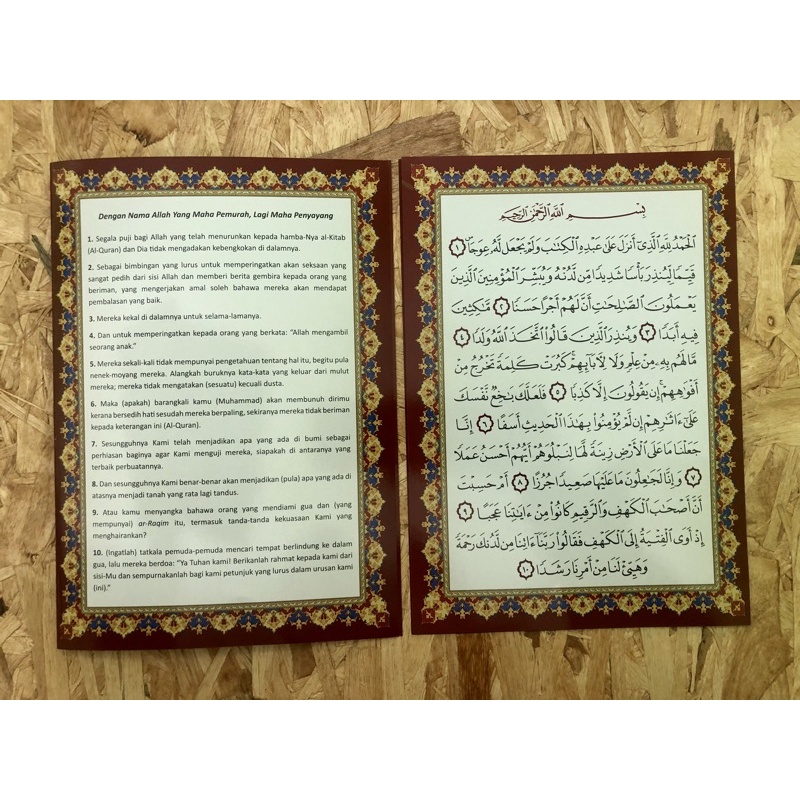 Dengan Nama Allah Yang Maha Pemurah, Lagi Maha Penyayang
1. Segala puji bagi Allah yang telah menurunkan kepada hamba-Nya al-Kitab
(Al-Quran) dan Dia tidak mengadakan kebengkokan di dalamnya.
2. Sebagai bimbingan yang lurus untuk memperingatkan akan seksaan yang
sangat pedih dari sisi Allah dan memberi berita gembira kepada orang yang
beriman, yang mengerjakan amal soleh bahawa mereka akan mendapat
pembalasan yang baik.
3. Mereka kekal di dalamnya untuk selama-lamanya.
4. Dan untuk memperingatkan kepada orang yang berkata: “Allah mengambil
seorang anak.”
5. Mereka sekali-kali tidak mempunyai pengetahuan tentang hal itu, begitu pula
nenek-moyang mereka. Alangkah buruknya kata-kata yang keluar dari mulut
mereka; mereka tidak mengatakan (sesuatu) kecuali dusta.
6. Maka (apakah) barangkali kamu (Muhammad) akan membunuh dirimu
kerana bersedih hati sesudah mereka berpaling, sekiranya mereka tidak beriman
kepada keterangan ini (Al-Quran).
7. Sesungguhnya Kami telah menjadikan apa yang ada di bumi sebagai
perhiasan baginya agar Kami menguji mereka, siapakah di antaranya yang
terbaik perbuatannya.
8. Dan sesungguhnya Kami benar-benar akan menjadikan (pula) apa yang ada di
atasnya menjadi tanah yang rata lagi tandus.
9. Atau kamu menyangka bahawa orang yang mendiami gua dan (yang
mempunyai) ar-Raqim itu, termasuk tanda-tanda kekuasaan Kami yang
menghairankan?
10. (Ingatlah) tatkala pemuda-pemuda mencari tempat berlindung ke dalam
gua, lalu mereka berdoa: “Ya Tuhan kami! Berikanlah rahmat kepada kami dari
sisi-Mu dan sempurnakanlah bagi kami petunjuk yang lurus dalam urusan kami
(ini).”
بِسْمِ اللَّهِ الرَّحْمَٰنِ الرَّحِيمِ
ٱلْحَمْدُ لِلَّهِ ٱلَّذِىٓ أَنزَلَ عَلَىٰ عَبْدِهِ ٱلْكِتَٰبَ وَلَمْ يَجْعَل لَّهُۥ عِوَجَا ۜ ١
قَيِّمًا لِّيُنذِرَ بَأْسًا شَدِيدًا مِّن لَّدُنْهُ وَيُبَشِّرَ ٱلْمُؤْمِنِينَ ٱلَّذِينَ
يَعْمَلُونَ ٱلصَّٰلِحَٰتِ أَنَّ لَهُمْ أَجْرًا حَسَنًا ٢ مَّٰكِثِينَ
فِيهِ أَبَدًا ٣ وَيُنذِرَ ٱلَّذِينَ قَالُوا۟ ٱتَّخَذَ ٱللَّهُ وَلَدًا ٤
مَّا لَهُم بِهِۦ مِنْ عِلْمٍ وَلَا لِءَابَآئِهِمْ ۚ كَبُرَتْ كَلِمَةً تَخْرُجُ مِنْ
أَفْوَٰهِهِمْ ۚ إِن يَقُولُونَ إِلَّا كَذِبًا ٥ فَلَعَلَّكَ بَٰخِعٌ نَّفْسَكَ
عَلَىٰٓ ءَاثَٰرِهِمْ إِن لَّمْ يُؤْمِنُوا۟ بِهَٰذَا ٱلْحَدِيثِ أَسَفًا ٦ إِنَّا
جَعَلْنَا مَا عَلَى ٱلْأَرْضِ زِينَةً لَّهَا لِنَبْلُوَهُمْ أَيُّهُمْ أَحْسَنُ عَمَلًا
٧ وَإِنَّا لَجَٰعِلُونَ مَا عَلَيْهَا صَعِيدًا جُرُزًا ٨ أَمْ حَسِبْتَ
أَنَّ أَصْحَٰبَ ٱلْكَهْفِ وَٱلرَّقِيمِ كَانُوا۟ مِنْ ءَايَٰتِنَا عَجَبًا ٩
إِذْ أَوَى ٱلْفِتْيَةُ إِلَى ٱلْكَهْفِ فَقَالُوا۟ رَبَّنَآ ءَاتِنَا مِن لَّدُنكَ رَحْمَةً
وَهَيِّئْ لَنَا مِنْ أَمْرِنَا رَشَدًا ١٠